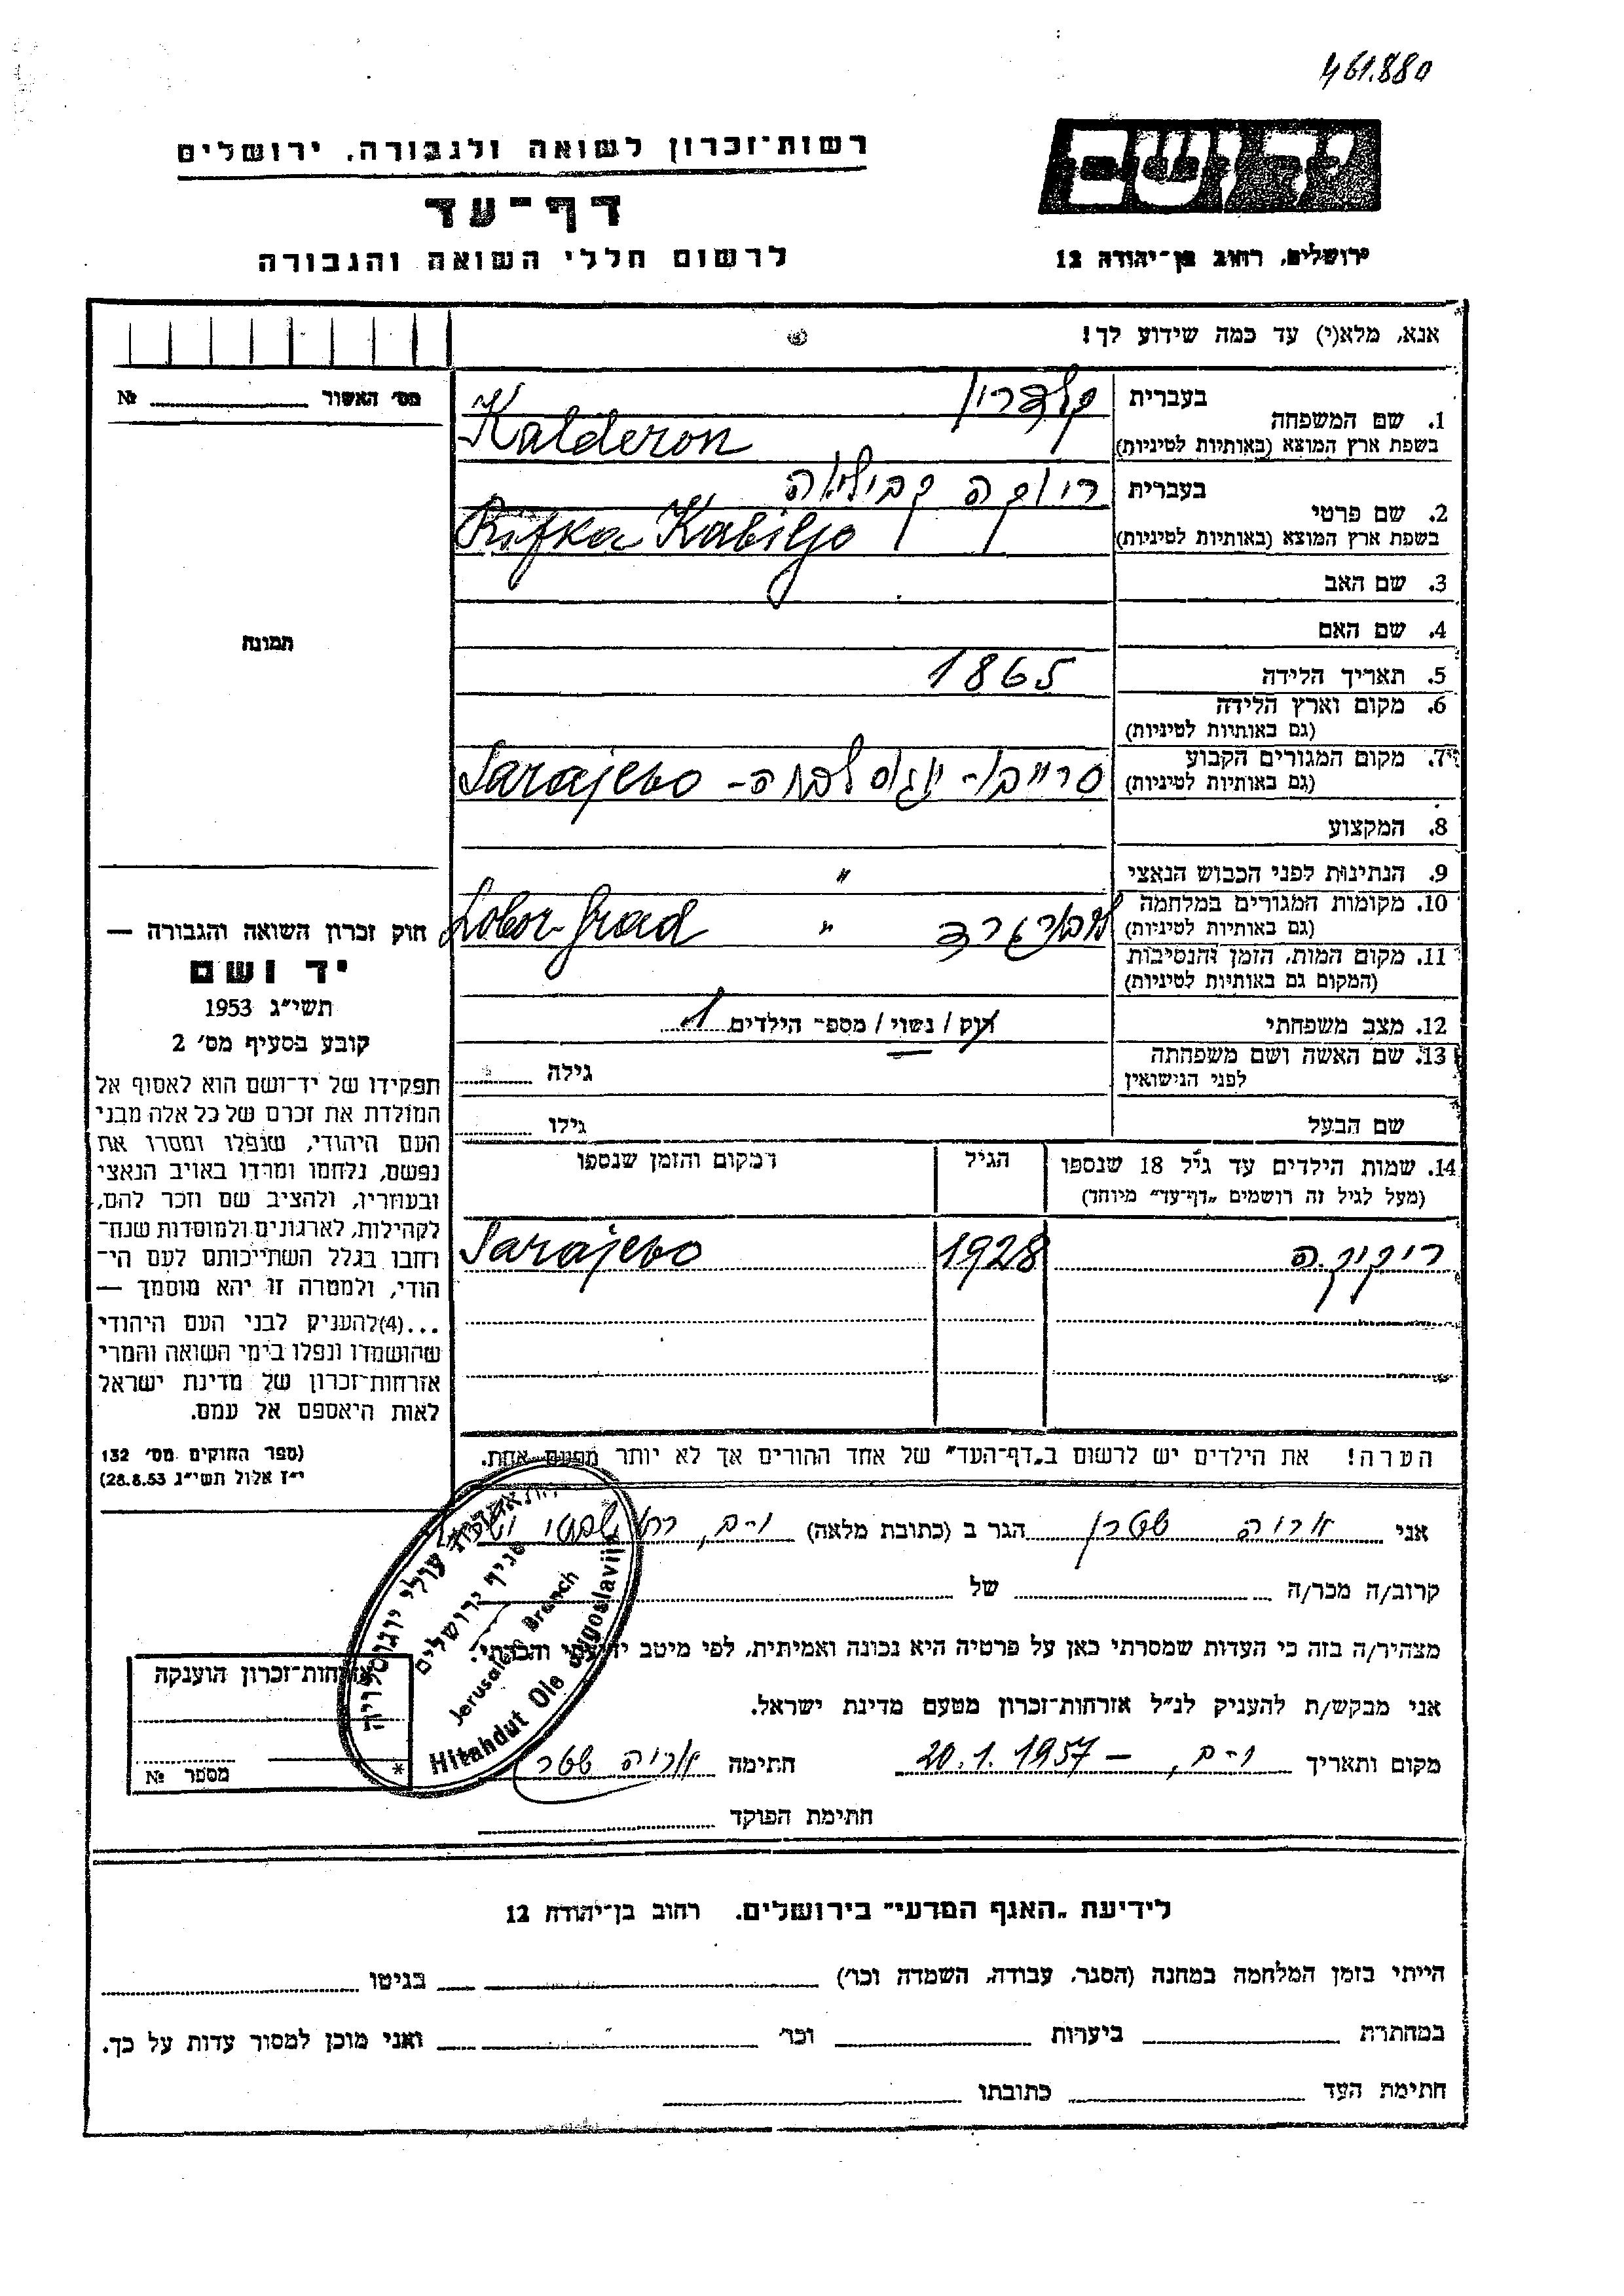 461.880
רשות־זכרון לשואה ולגבורה, ירושלים
יד ושם
דף־עד
לרשום חללי השואה והגבורה
ירושלים, רחוב בן־יהודה 12
אנא, מלא(י) עד כמה שידוע לך!
מס׳ האשור №
1. שם המשפחה
בעברית קלדרון
בשפת ארץ המוצא (באותיות לטיניות) Kalderon
2. שם פרטי
בעברית ריוקה קביליו
בשפת ארץ המוצא (באותיות לטיניות) Rifka Kabiljo
3. שם האב
4. שם האם
5. תאריך הלידה 1865
6. מקום וארץ הלידה
(גם באותיות לטיניות)
7. מקום המגורים הקבוע
(גם באותיות לטיניות) סרייבו - יוגוסלביה - Sarajevo
8. המקצוע
9. הנתינות לפני הכבוש הנאצי "
10. מקומות המגורים במלחמה
(גם באותיות לטיניות) לוברגרד " Lobor-Grad
11. מקום המות, הזמן והנסיבות
(המקום גם באותיות לטיניות)
12. מצב משפחתי רוק / נשוי / מספר הילדים 1
13. שם האשה ושם משפחתה
לפני הנישואין
גילה
שם הבעל
גילו
14. שמות הילדים עד גיל 18 שנספו
(מעל לגיל זה רושמים „דף־עד״ מיוחד)
הגיל
המקום והזמן שנספו
1928 Sarajevo
הערה! את הילדים יש לרשום ב„דף־העד״ של אחד ההורים אך לא יותר מפעם אחת.
תמונה
חוק זכרון השואה והגבורה —
יד ושם
תשי״ג 1953
קובע בסעיף מס׳ 2
תפקידו של יד־ושם הוא לאסוף אל
המולדת את זכרם של כל אלה מבני
העם היהודי, שנפלו ומסרו את
נפשם, נלחמו ומרדו באויב הנאצי
ובעוזריו, ולהציב שם וזכר להם,
לקהילות, לארגונים ולמוסדות שנח־
רבו בגלל השתייכותם לעם הי־
הודי, ולמטרה זו יהא מוסמך —
...(4)להעניק לבני העם היהודי
שהושמדו ונפלו בימי השואה והמרי
אזרחות־זכרון של מדינת ישראל
לאות היאספם אל עמם.
(ספר החוקים מס׳ 132
י״ז אלול תשי״ג 28.8.53)
אני אריה שטרן הגר ב (כתובת מלאה) י-ם,
קרוב/ה מכר/ה של
מצהיר/ה בזה כי העדות שמסרתי כאן על פרטיה היא נכונה ואמיתית, לפי מיטב ידיעתי והכרתי.
אני מבקש/ת להעניק לנ״ל אזרחות־זכרון מטעם מדינת ישראל.
מקום ותאריך י-ם, — 20.1.1957 חתימה אריה שטרן
חתימת הפוקד
עולי יוגוסלביה
סניף ירושלים
Jerusalem Branch
Hitahdut Ole Jugoslavija
*
אזרחות־זכרון הוענקה
מספר №
לידיעת „האגף המדעי״ בירושלים. רחוב בן־יהודה 12
הייתי בזמן המלחמה במחנה (הסגר, עבודה, השמדה וכו׳) בגיטו
במחתרת ביערות וכו׳ ואני מוכן למסור עדות על כך.
חתימת העד כתובתו